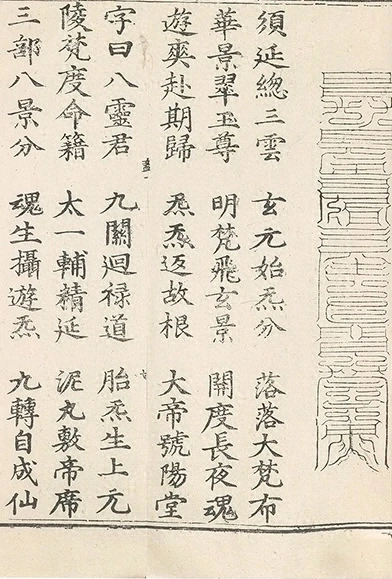 須延總三雲 玄元始炁分 落落大梵布
華景翠玉尊 明梵飛玄景 開度長夜魂
遊爽赴期歸 炁炁返故根 大帝號陽堂
字曰八靈君 九關迴祿道 胎炁生上元
陵梵度命籍 太一輔精延 泥丸敷帝席
三部八景分 魂生攝遊炁 九轉自成仙